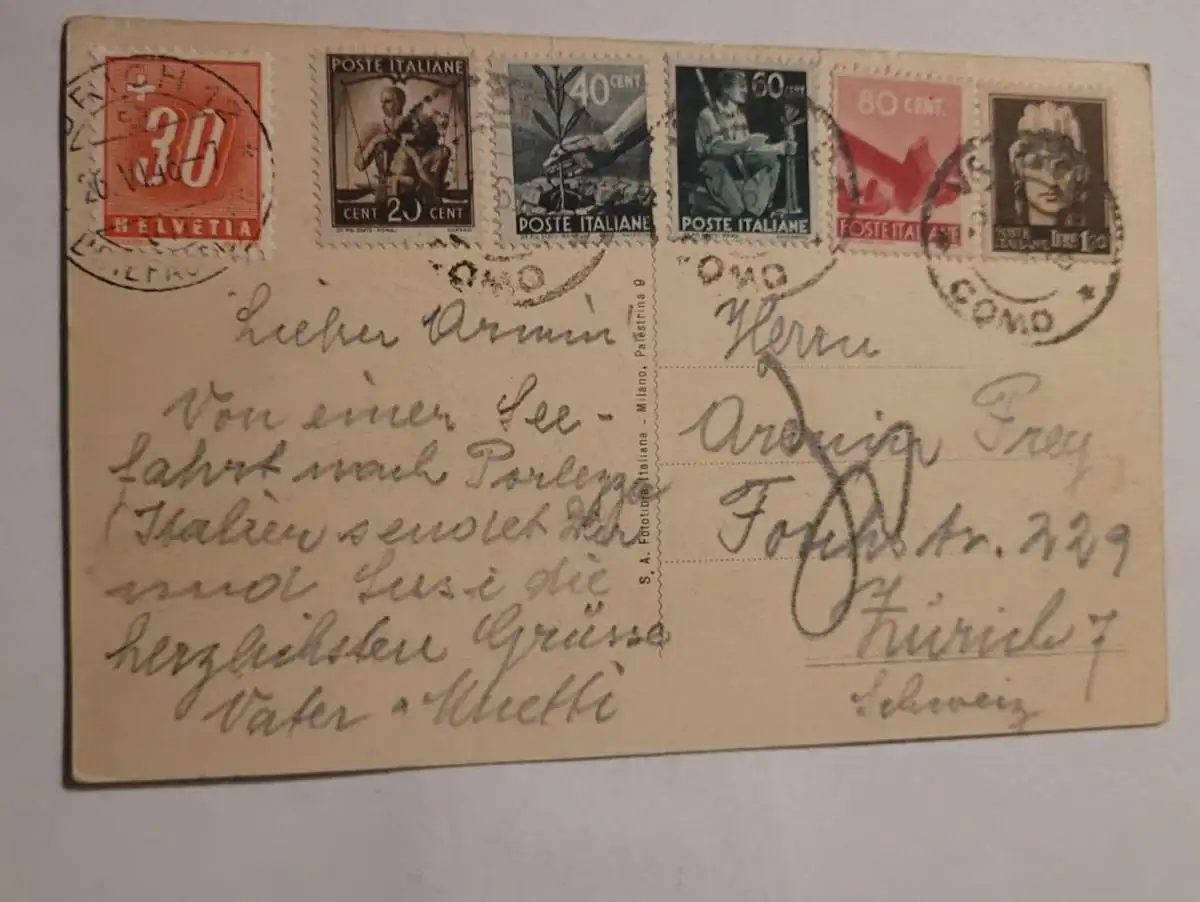 30
HELVETIA
POSTE ITALIANE
CENT 20 CENT
40 CENT.
POSTE ITALIANE
60 CENT.
POSTE ITALIANE
80 CENT.
POSTE ITALIANE
POSTE ITALIANE
COMO
Lieber Armin
Von einer See-
fahrt nach Porlezza
(Italien sendet
und Susi die
herzlichsten Grüsse
Vater Muetti
S. A. Fototipia Italiana - Milano, Palestrina 9
Herrn
Armin Frey
229
Zürich 7
Schweiz